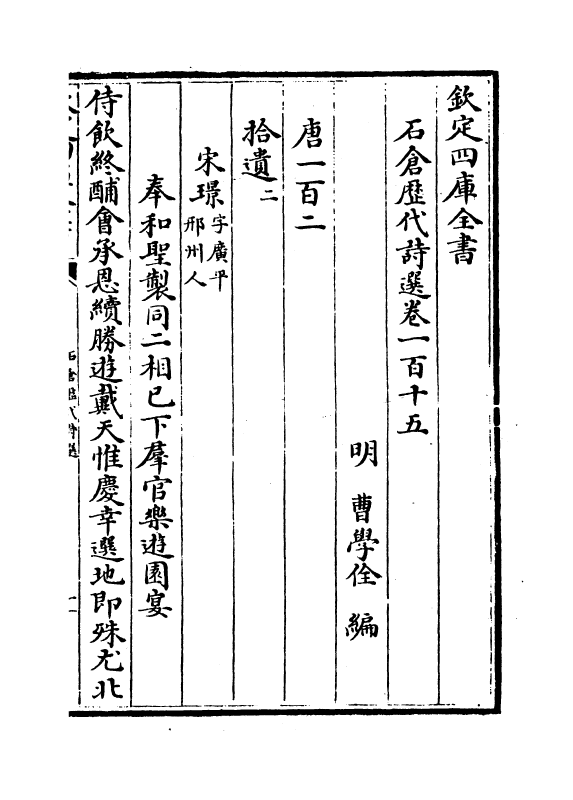 欽定四庫全書
石倉歷代詩選卷一百十五
明 曹學佺 編
唐一百二
拾遺二
宋璟字廣平邢州人
奉和聖製同二相已下羣官樂遊園宴
侍飲終酺會承恩續勝遊戴天惟慶幸選地即殊尤北
石倉歷代詩選